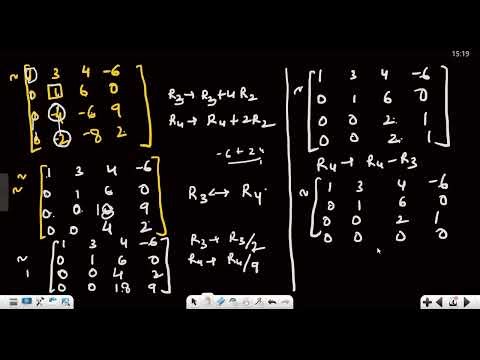 15:19
~ 1 3 4 -6
0 1 6 0
0 -4 -6 9
0 -2 -8 2
R3 → R3+4R2
R4 → R4+2R2
-6+24
~ 1 3 4 -6
~ 0 1 6 0
0 0 18 9
0 0 4 2
R3 ↔ R4
~ 1 3 4 -6
0 1 6 0
0 0 4 2
0 0 18 9
R3 → R3/2
R4 → R4/9
~ 1 3 4 -6
0 1 6 0
0 0 2 1
0 0 2 1
R4 → R4-R3
~ 1 3 4 -6
0 1 6 0
0 0 2 1
0 0 0 0